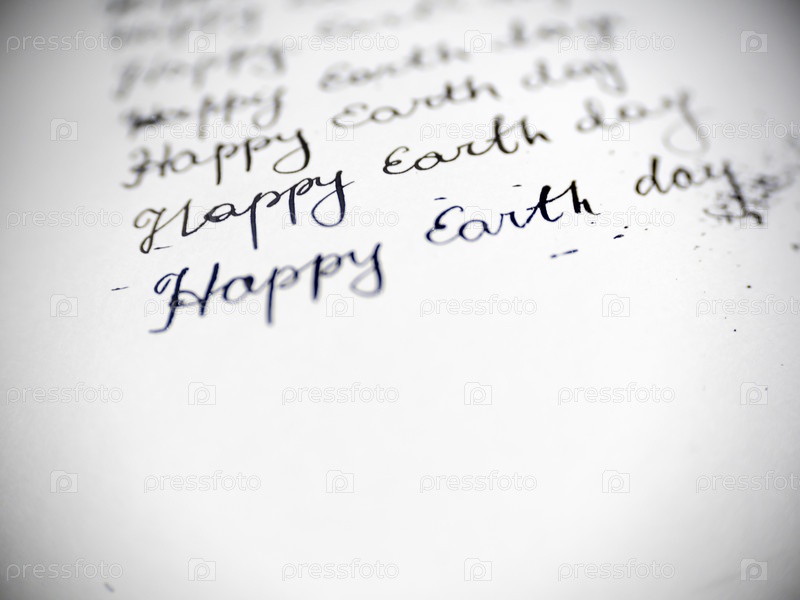 Happy Earth day
Happy Earth day
Happy Earth day
Happy Earth day
Happy Earth day
Happy Earth day
pressfoto